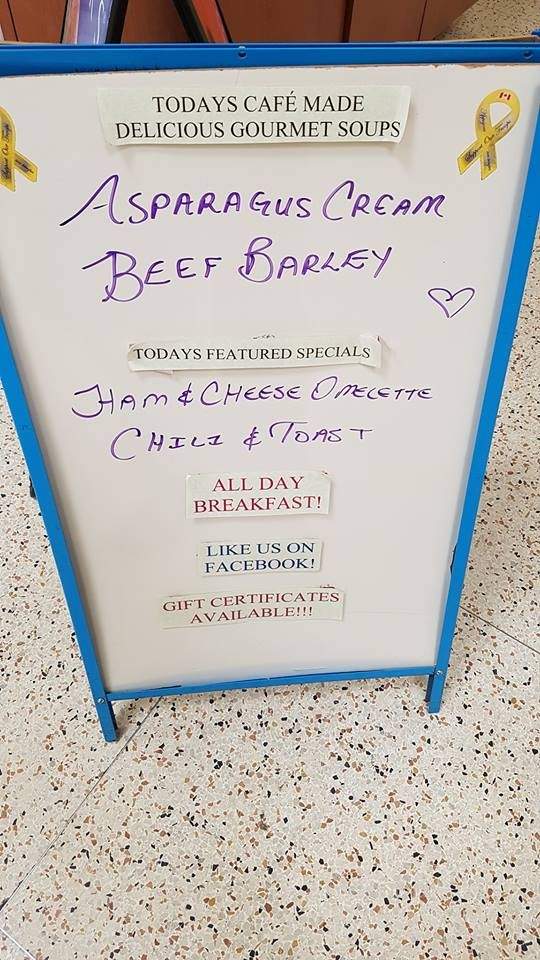 TODAYS CAFÉ MADE
DELICIOUS GOURMET SOUPS
Support Our Troops
ASPARAGUS CREAM
BEEF BARLEY
TODAYS FEATURED SPECIALS
HAM & CHEESE OMELETTE
CHILI & TOAST
ALL DAY
BREAKFAST!
LIKE US ON
FACEBOOK!
GIFT CERTIFICATES
AVAILABLE!!!